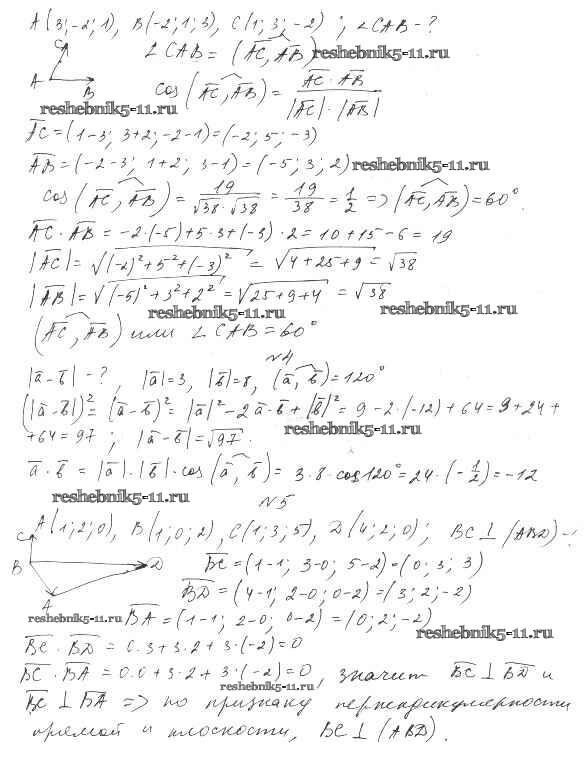 A(3;-2;1), B(-2;1;3), C(1;3;-2) ; ∠CAB-?
C
∠CAB = (AC, AB) reshebnik5-11.ru
A B
cos(AC, AB) = AC · AB / |AC|·|AB|
reshebnik5-11.ru
AC = (1-3; 3+2; -2-1) = (-2; 5; -3)
AB = (-2-3; 1+2; 3-1) = (-5; 3; 2) reshebnik5-11.ru
cos(AC, AB) = 19/√38·√38 = 19/38 = 1/2 => (AC, AB) = 60°.
AC · AB = -2·(-5)+5·3+(-3)·2 = 10+15-6 = 19
|AC| = √(-2)²+5²+(-3)² = √4+25+9 = √38
|AB| = √(-5)²+3²+2² = √25+9+4 = √38 reshebnik5-11.ru
reshebnik5-11.ru
(AC, AB) или ∠CAB = 60°
№4
|a-b| - ?, |a|=3, |b|=8, (a, b)=120°
(|a-b|)² = (a-b)² = |a|² - 2a·b + |b|² = 9-2·(-12)+64 = 9+24+
+64=97 ; |a-b| = √97. reshebnik5-11.ru
a·b = |a|·|b|·cos(a, b) = 3·8·cos120° = 24·(-1/2) = -12
reshebnik5-11.ru
№5
A(1;2;0), B(1;0;2), C(1;3;5), D(4;2;0); BC⊥(ABD)-?
C
B D
BC = (1-1; 3-0; 5-2) = (0; 3; 3)
BD = (4-1; 2-0; 0-2) = (3; 2; -2)
A
reshebnik5-11.ru BA = (1-1; 2-0; 0-2) = (0; 2; -2)
reshebnik5-11.ru
BC · BD = 0·3+3·2+3·(-2)=0
BC · BA = 0·0+3·2+3·(-2)=0, значит BC⊥BD и
reshebnik5-11.ru
BC⊥BA => по признаку перпендикулярности
прямой и плоскости, BC⊥(ABD).